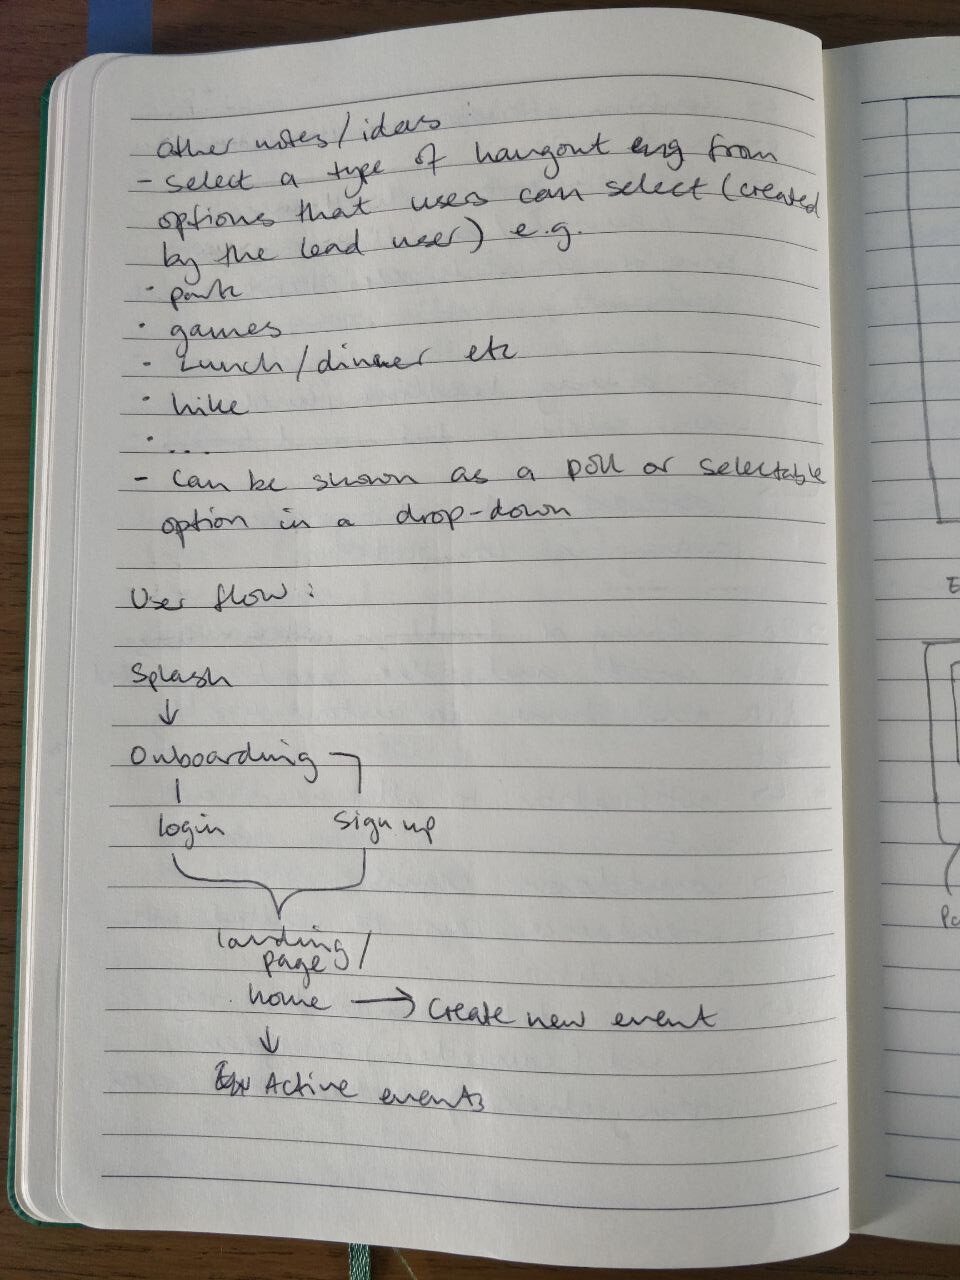 other notes/ideas :
- select a type of hangout eng from
options that uses can select (created
by the lead user) e.g.
· park
· games
- Lunch/dinner etc
· hike
· ...
- can be shown as a poll or selectable
option in a drop-down
User flow :
Splash
↓
Onboarding
login sign up
landing/
page
home → create new event
↓
Active events
E
Pa